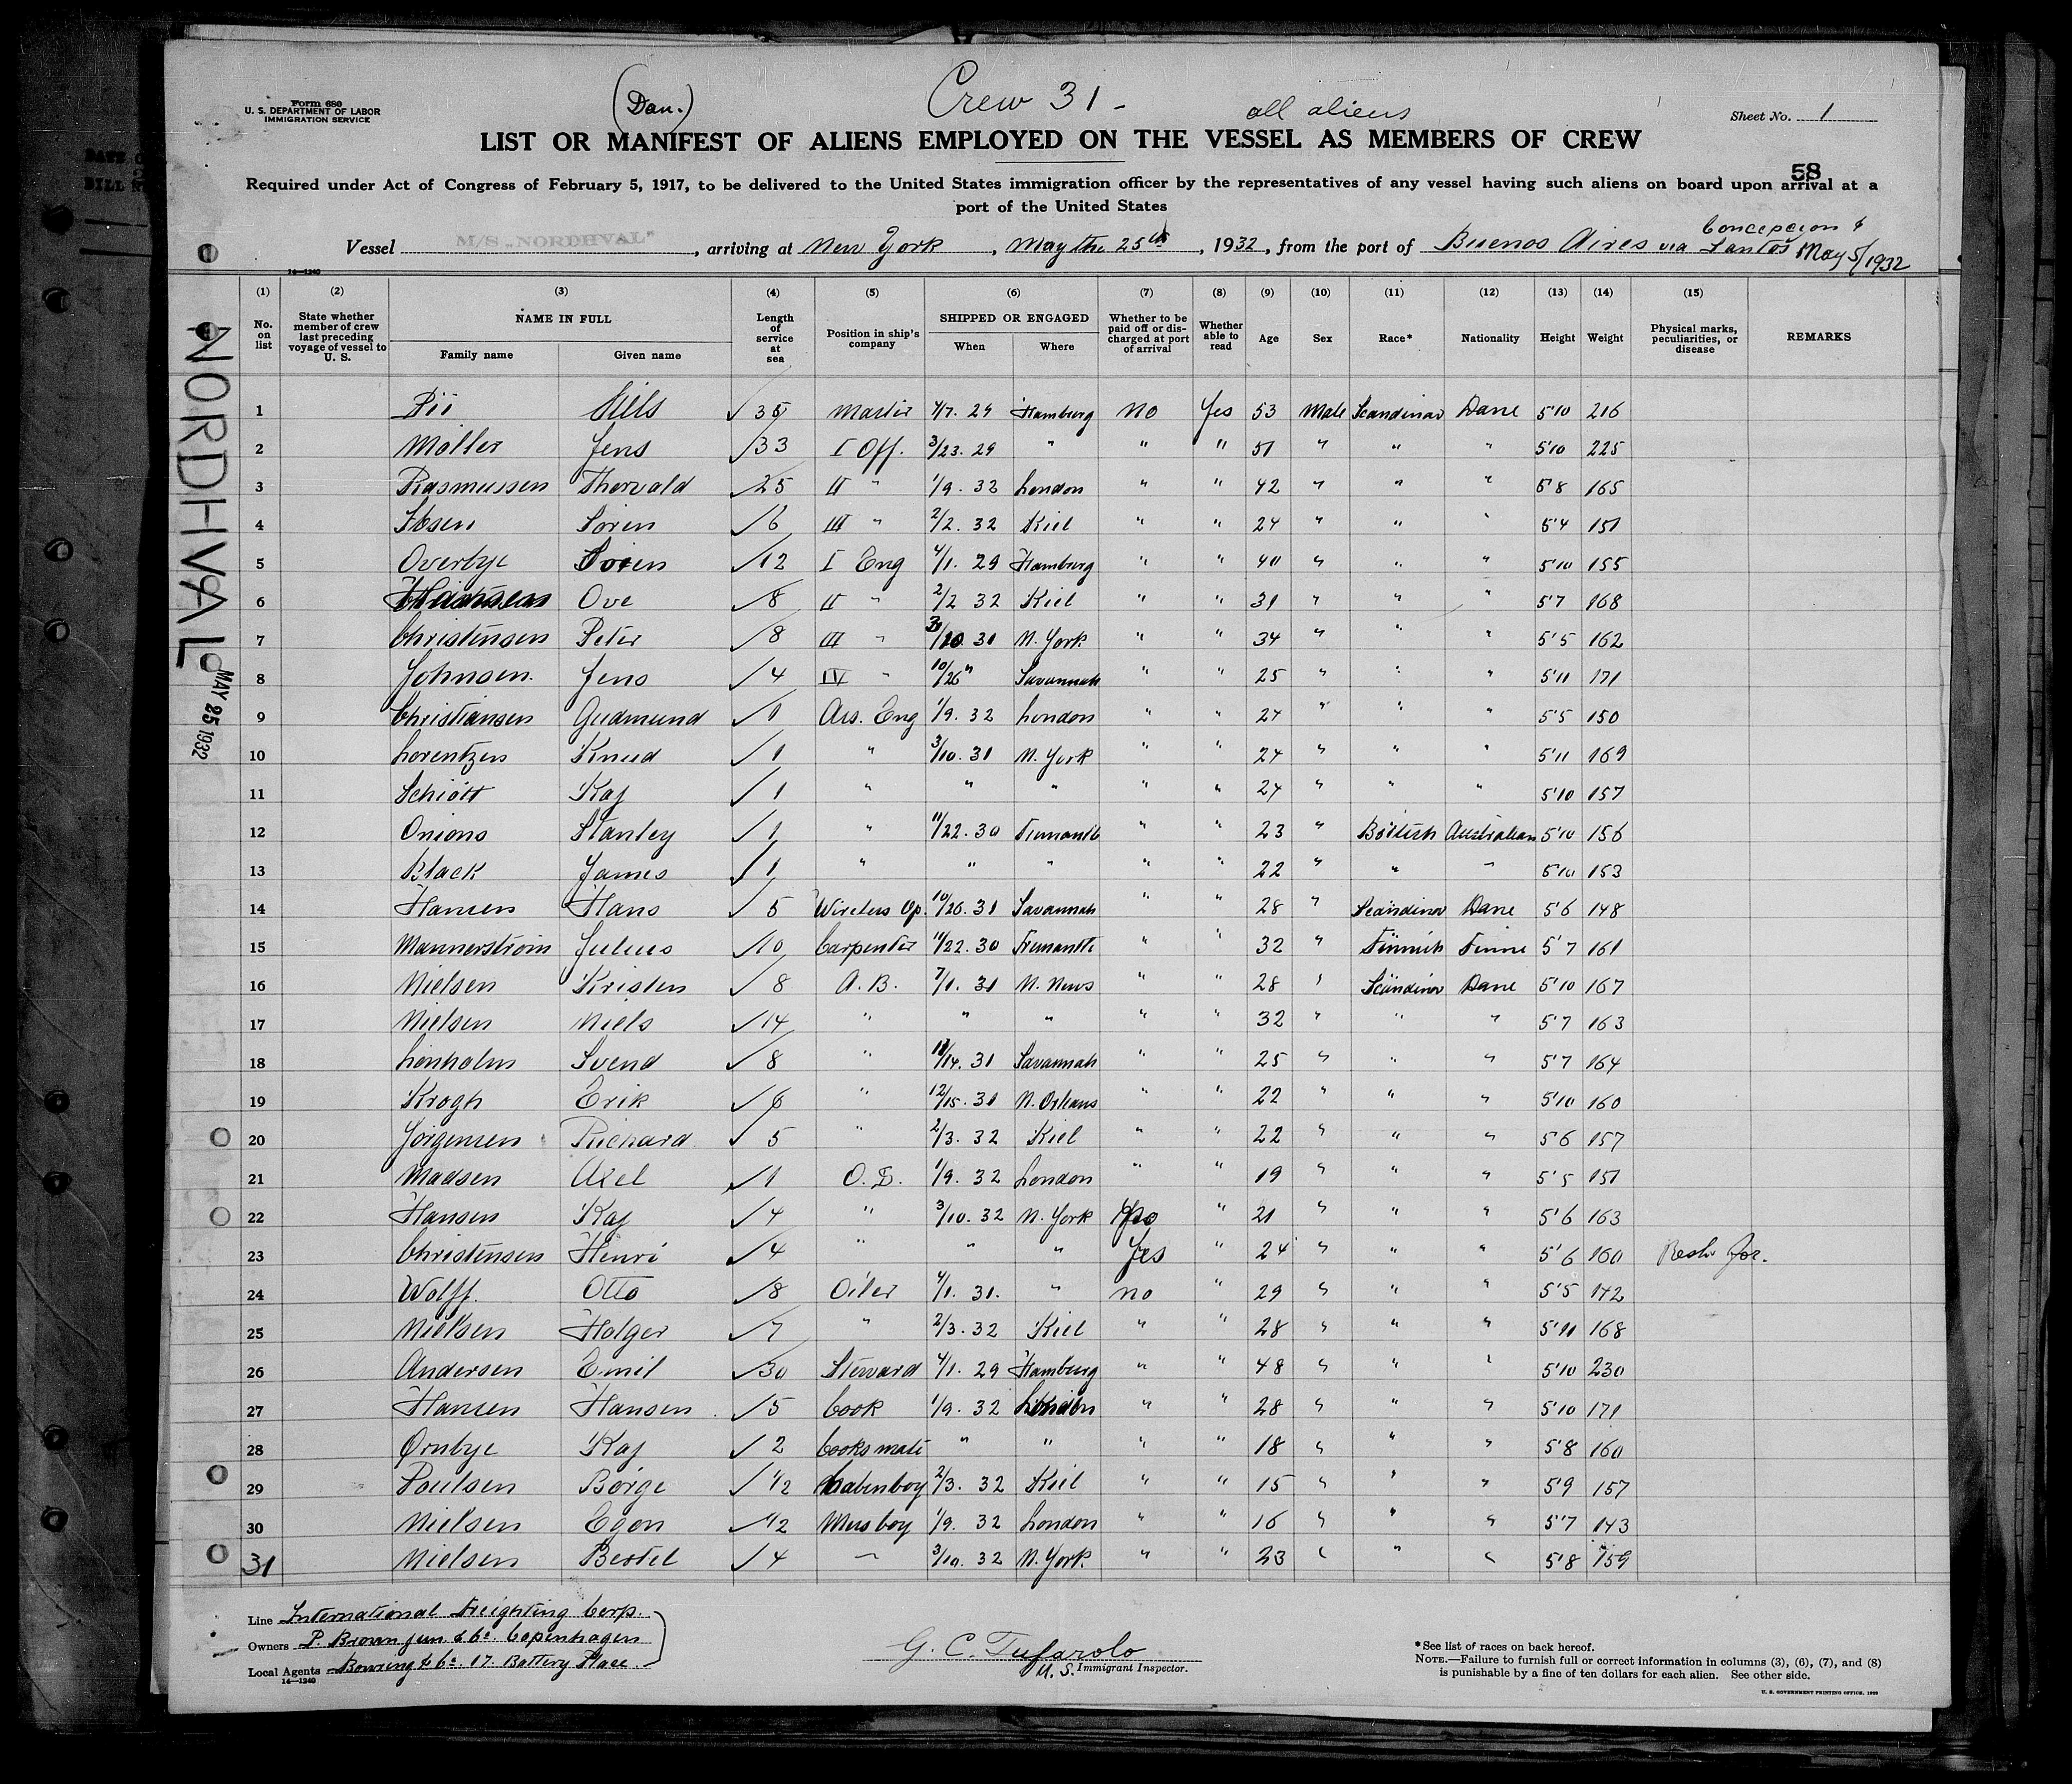 (Dan.)
Crew 31 -
all aliens
Form 680
U. S. DEPARTMENT OF LABOR
IMMIGRATION SERVICE
Sheet No. 1
LIST OR MANIFEST OF ALIENS EMPLOYED ON THE VESSEL AS MEMBERS OF CREW
58
Required under Act of Congress of February 5, 1917, to be delivered to the United States immigration officer by the representatives of any vessel having such aliens on board upon arrival at a
port of the United States
Concepcion &
Vessel M/S „NORDHVAL", arriving at New York, May the 25th, 1932, from the port of Buenos Aires via Santos May 5/1932
14—1240
(1) (2) (3) (4) (5) (6) (7) (8) (9) (10) (11) (12) (13) (14) (15)
No. on list | State whether member of crew last preceding voyage of vessel to U. S. | NAME IN FULL | Family name | Given name | Length of service at sea | Position in ship's company | SHIPPED OR ENGAGED | When | Where | Whether to be paid off or discharged at port of arrival | Whether able to read | Age | Sex | Race* | Nationality | Height | Weight | Physical marks, peculiarities, or disease | REMARKS
NORDHVAL
MAY 25 1932
1 Pii Nils √ 35 Master 4/7. 29 Hamburg no Yes 53 Male Scandinav Dane 5'10 216
2 Möller Jens √ 33 I Off. 3/23. 29 " " " 51 " " " 5'10 225
3 Rasmussen Thorvald √ 25 II " 1/9. 32 London " " 42 " " " 5'8 165
4 Ibsen Sören √ 6 III " 2/2. 32 Kiel " " 24 " " " 5'4 151
5 Overbye Sören √ 12 I Eng 4/1. 29 Hamburg " " 40 " " " 5'10 155
6 Ove √ 8 II " 2/2 32 Kiel " " 31 " " " 5'7 168
7 Christensen Peter √ 8 III " 3/10. 31 N. York " " 34 " " " 5'5 162
8 Johnsen Jens √ 4 IV " 10/26 " Savannah " " 25 " " " 5'11 171
9 Christiansen Gudmund √ 1 Ass. Eng 1/9. 32 London " " 24 " " " 5'5 150
10 Lorentzen Knud √ 1 " 3/10. 31 N. York " " 24 " " " 5'11 169
11 Schiött Kaj √ 1 " " " " " 24 " " " 5'10 157
12 Onions Stanley √ 1 " 11/22. 30 Fremantle " " 23 " British Australian 5'10 156
13 Black James √ 1 " " " " " 22 " " " 5'10 153
14 Hansen Hans √ 5 Wireless Op. 10/26. 31 Savannah " " 28 " Scandinav Dane 5'6 148
15 Mannerström Julius √ 10 Carpenter 11/22. 30 Fremantle " " 32 " Finnish Finne 5'7 161
16 Nielsen Kristen √ 8 A. B. 7/1. 31 N. News " " 28 " Scandinav Dane 5'10 167
17 Nielsen Niels √ 14 " " " " " 32 " " " 5'7 163
18 Lönholm Svend √ 8 " 11/14. 31 Savannah " " 25 " " " 5'7 164
19 Krogh Erik √ 6 " 12/15. 31 N. Orleans " " 22 " " " 5'10 160
20 Jörgensen Richard √ 5 " 2/3. 32 Kiel " " 22 " " " 5'6 157
21 Madsen Axel √ 1 O. S. 1/9. 32 London " " 19 " " " 5'5 151
22 Hansen Kaj √ 4 " 3/10. 32 N. York No " 21 " " " 5'6 163
23 Christensen Henri √ 4 " " " Yes " 24 " " " 5'6 160
24 Wolff. Otto √ 8 Oiler 4/1. 31. " no " 29 " " " 5'5 142
25 Nielsen Holger √ 7 " 2/3. 32 Kiel " " 28 " " " 5'11 168
26 Andersen Emil √ 30 Steward 4/1. 29 Hamburg " " 48 " " " 5'10 230
27 Hansen Hansen √ 5 Cook 1/9. 32 London " " 28 " " " 5'10 171
28 Ørnbye Kaj √ 2 Cooks mate " " " " 18 " " " 5'8 160
29 Poulsen Börge √ 1/2 Cabinboy 2/3. 32 Kiel " " 15 " " " 5'9 157
30 Nielsen Egon √ 1/2 Messboy 1/9. 32 London " " 16 " " " 5'7 143
31 Nielsen Bertel √ 4 " 3/10. 32 N. York. " " 23 " " " 5'8 159
Line International Freighting Corp.
Owners P. Brown jun & Co. Copenhagen
Local Agents Bowring & Co. 17 Battery Place.
14—1240
G. C. Tufarolo
U. S. Immigrant Inspector.
*See list of races on back hereof.
NOTE.—Failure to furnish full or correct information in columns (3), (6), (7), and (8)
is punishable by a fine of ten dollars for each alien. See other side.
U. S. GOVERNMENT PRINTING OFFICE. 1929